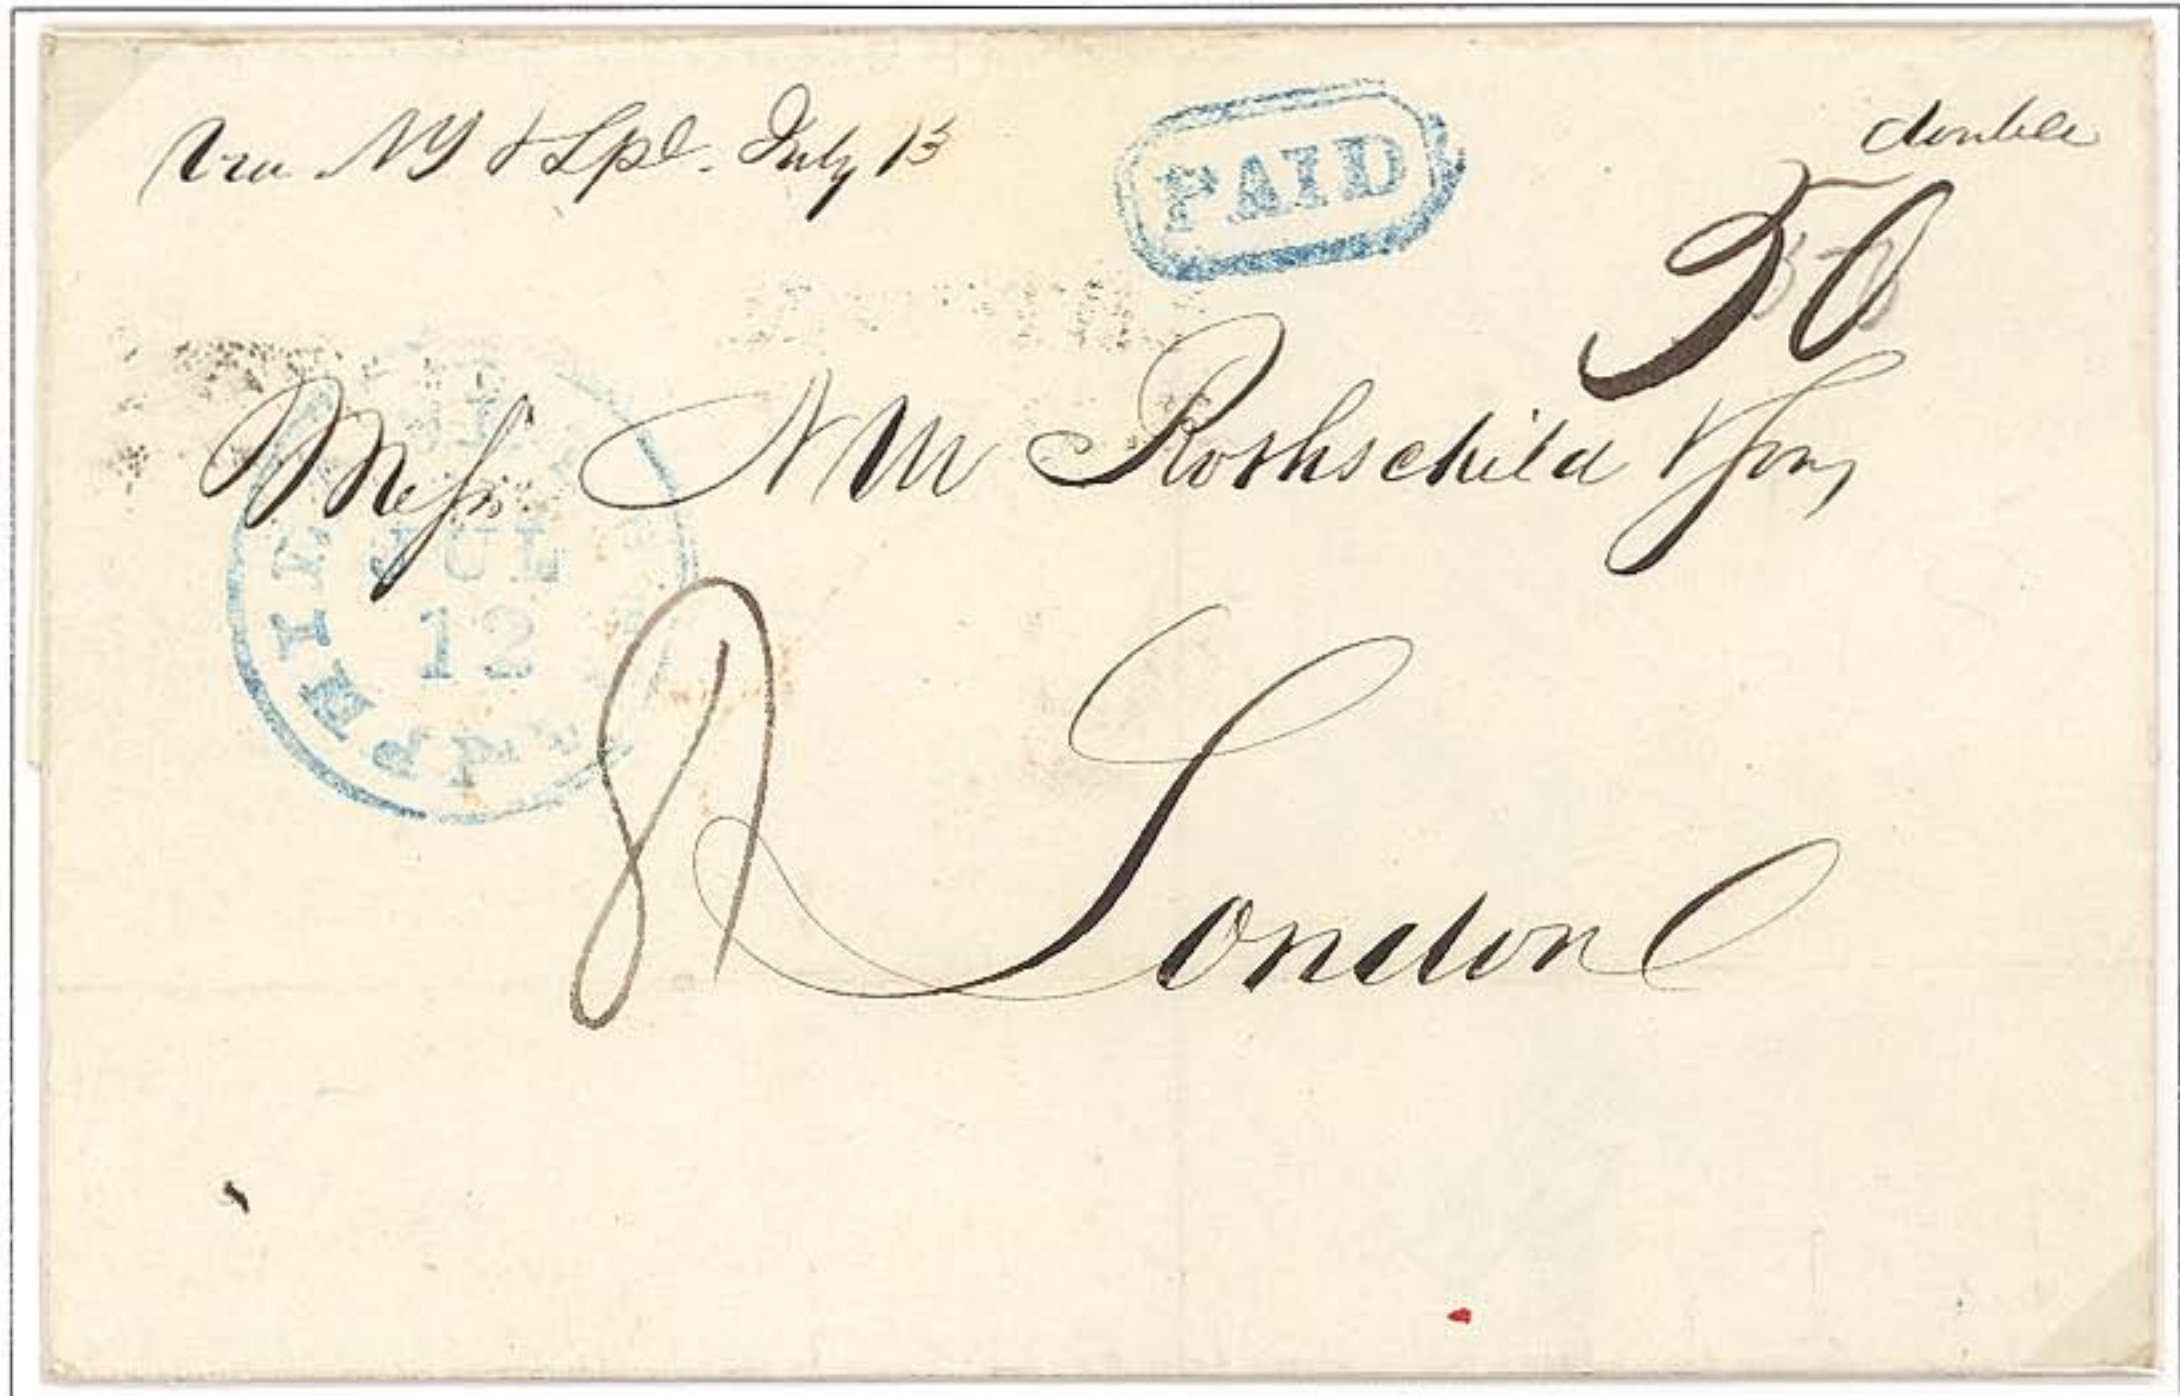 via NY & Lpl. July 13
PAID
double
50
Messrs N M Rothschild & Sons
JUL
12
8
London